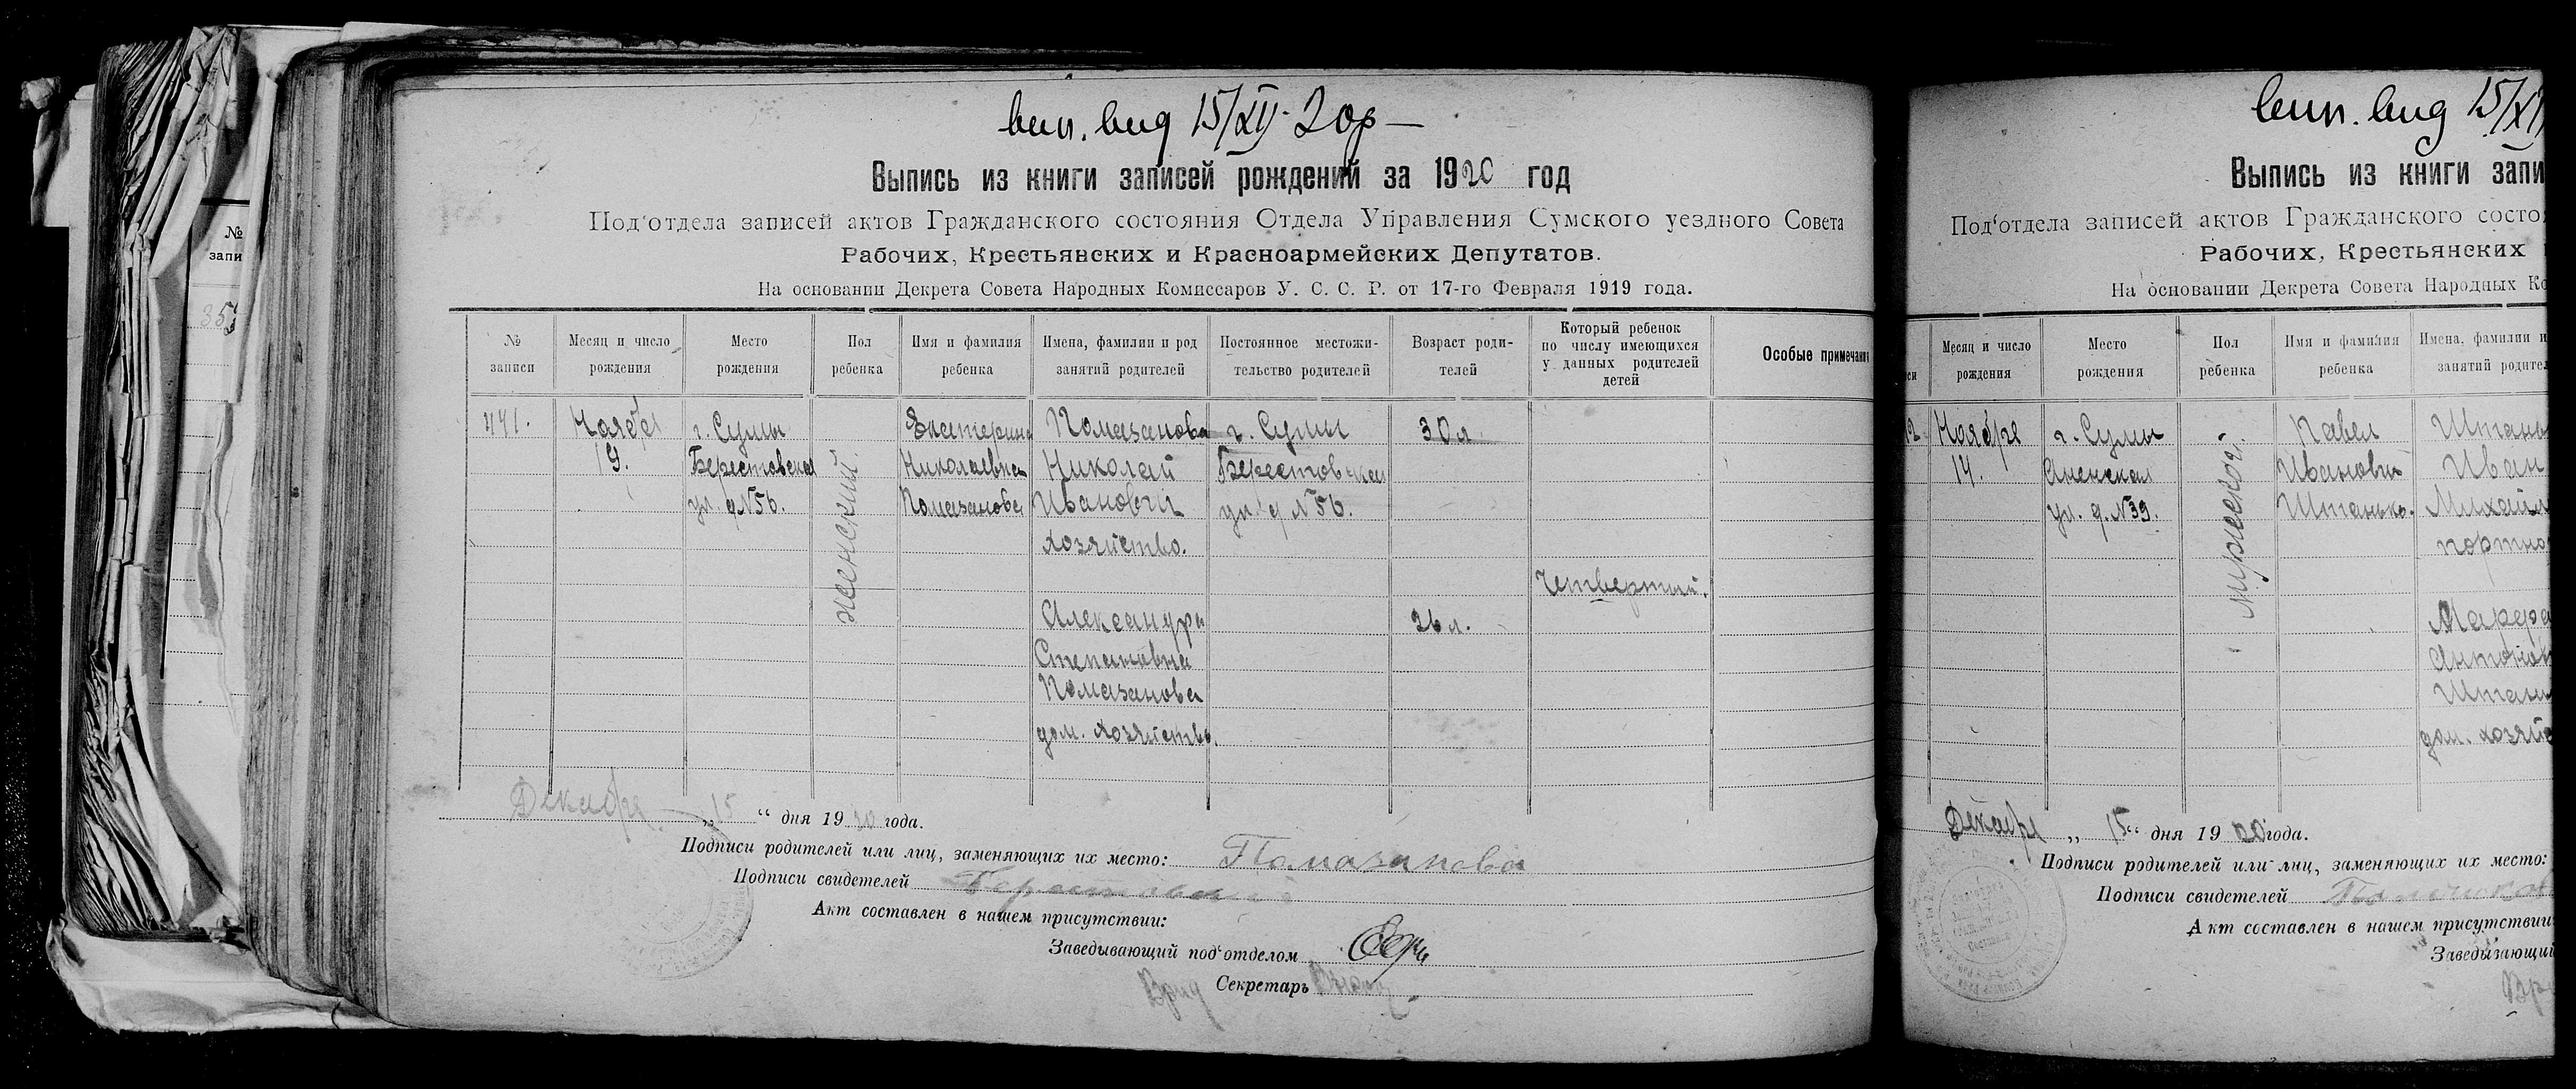 15/XII-20р
Выпись из книги записей рождений за 1920 год
Под'отдела записей актов Гражданского состояния Отдела Управления Сумского уездного Совета
Рабочих, Крестьянских и Красноармейских Депутатов.
На основании Декрета Совета Народных Комиссаров У. С. С. Р. от 17-го Февраля 1919 года.
№ записи
Месяц и число рождения
Место рождения
Пол ребенка
Имя и фамилия ребенка
Имена, фамилии и род занятий родителей
Постоянное местожительство родителей
Возраст родителей
Который ребенок по числу имеющихся у данных родителей детей
Особые примечания
441.
Ноября
19.
г. Сумы
Берестовская
ул. д №56.
женский.
Екатерина
Николаевна
Помазанова
Помазанова
Николай
Иванович
хозяйство.
Александра
Степановна
Помазанова
дом. хозяйство.
г. Сумы
Берестовская
ул. д №56.
30 л
26 л.
Четвертый.
Декабря „15“ дня 1920 года.
Подписи родителей или лиц, заменяющих их место: Помазанова
Подписи свидетелей
Акт составлен в нашем присутствии:
Заведывающий под'отделом
Врид Секретарь
№
запи
353
15/XII
Выпись из книги запи
Под'отдела записей актов Гражданского состоя
Рабочих, Крестьянских
На основании Декрета Совета Народных Ко
си
Месяц и число рождения
Место рождения
Пол ребенка
Имя и фамилия ребенка
Имена, фамилии и
занятий родител
12
Ноября
14.
г. Сумы
Аненская
ул. д. №39.
мужской.
Павел
Иванович
Штанько.
Штань
Иван
Михайл
портно
Марфа
Антонов
Штань
дом. хозяйс
Декабря „15“ дня 1920 года.
Подписи родителей или лиц, заменяющих их место:
Подписи свидетелей
Акт составлен в нашем присутствии
Заведывающий
Вр